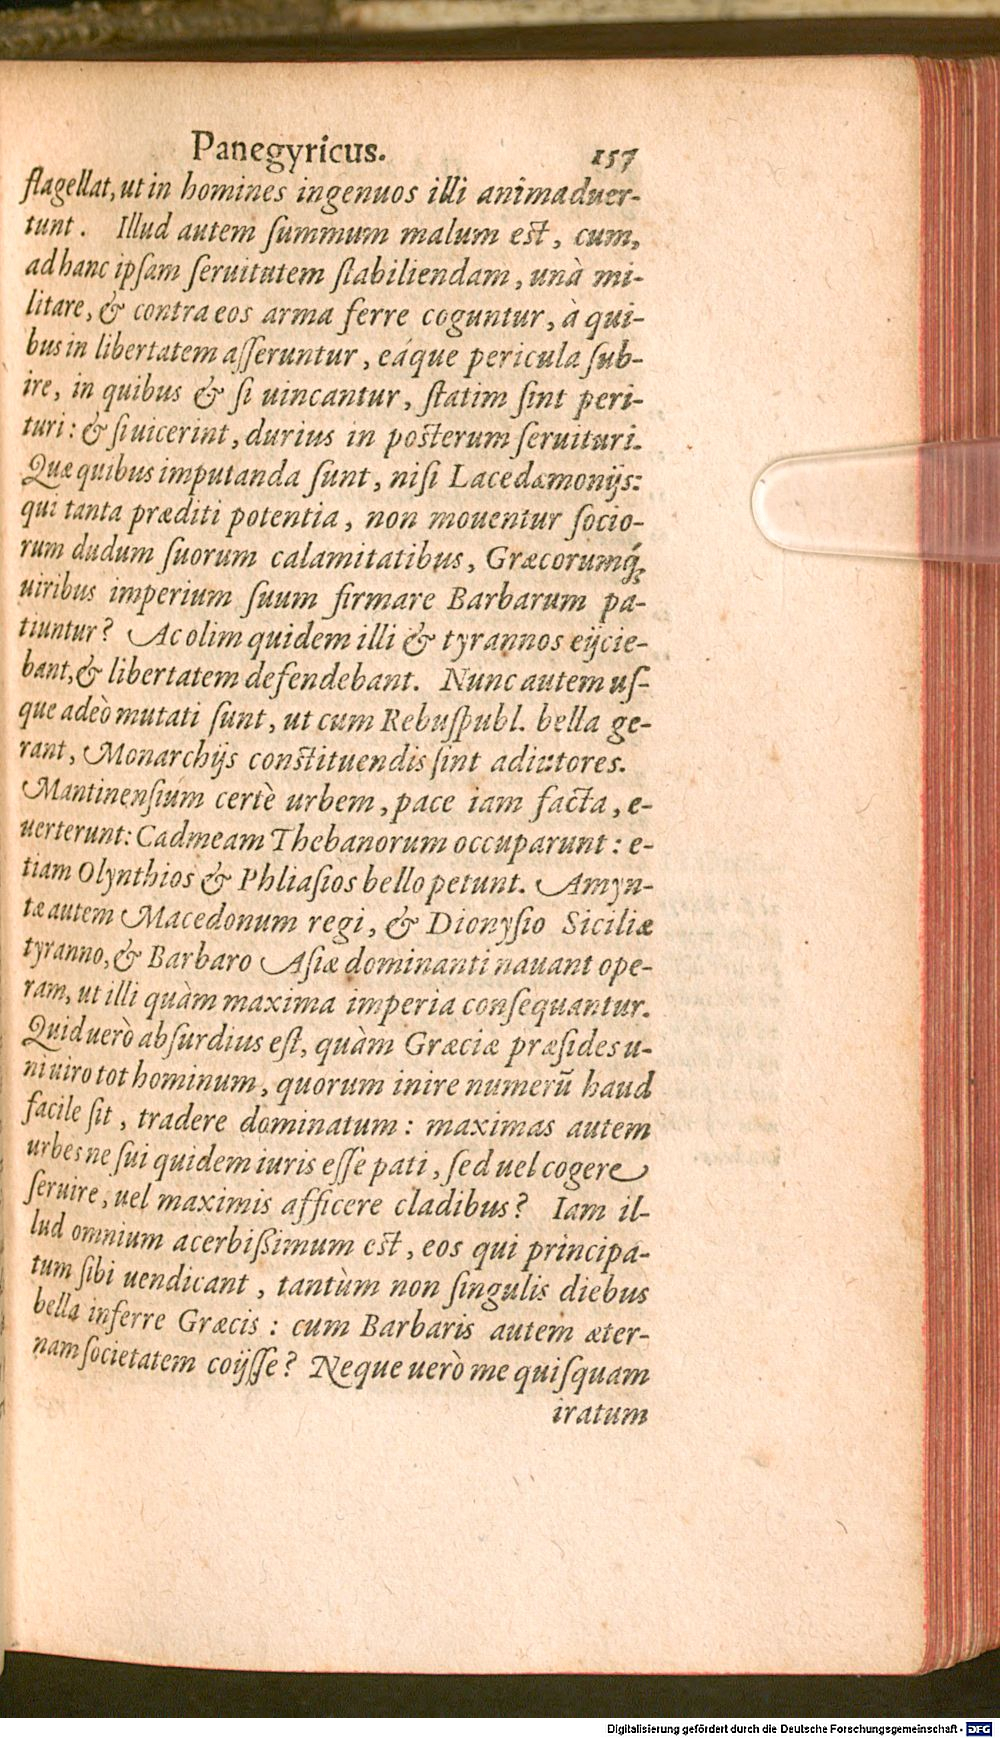 Panegyricus. 157
flagellat, ut in homines ingenuos illi animaduer-
tunt. Illud autem summum malum est, cum,
ad hanc ipsam seruitutem stabiliendam, unà mi-
litare, & contra eos arma ferre coguntur, à qui-
bus in libertatem asseruntur, eáque pericula sub-
ire, in quibus & si uincantur, statim sint peri-
turi: & si uicerint, durius in posterum seruituri.
Quæ quibus imputanda sunt, nisi Lacedæmonijs:
qui tanta præditi potentia, non mouentur socio-
rum dudum suorum calamitatibus, Græcorumq́;
uiribus imperium suum firmare Barbarum pa-
tiuntur? Ac olim quidem illi & tyrannos eijcie-
bant, & libertatem defendebant. Nunc autem us-
que adeò mutati sunt, ut cum Rebuspubl. bella ge-
rant, Monarchijs constituendis sint adiutores.
Mantinensium certè urbem, pace iam facta, e-
uerterunt: Cadmeam Thebanorum occuparunt: e-
tiam Olynthios & Phliasios bello petunt. Amyn-
tæ autem Macedonum regi, & Dionysio Siciliæ
tyranno, & Barbaro Asiæ dominanti nauant ope-
ram, ut illi quàm maxima imperia consequantur.
Quid uerò absurdius est, quàm Græciæ præsides u-
ni uiro tot hominum, quorum inire numerũ haud
facile sit, tradere dominatum: maximas autem
urbes ne sui quidem iuris esse pati, sed uel cogere
seruire, uel maximis afficere cladibus? Iam il-
lud omnium acerbißimum est, eos qui principa-
tum sibi uendicant, tantùm non singulis diebus
bella inferre Græcis: cum Barbaris autem æter-
nam societatem coijsse? Neque uerò me quisquam
iratum
Digitalisierung gefördert durch die Deutsche Forschungsgemeinschaft - DFG